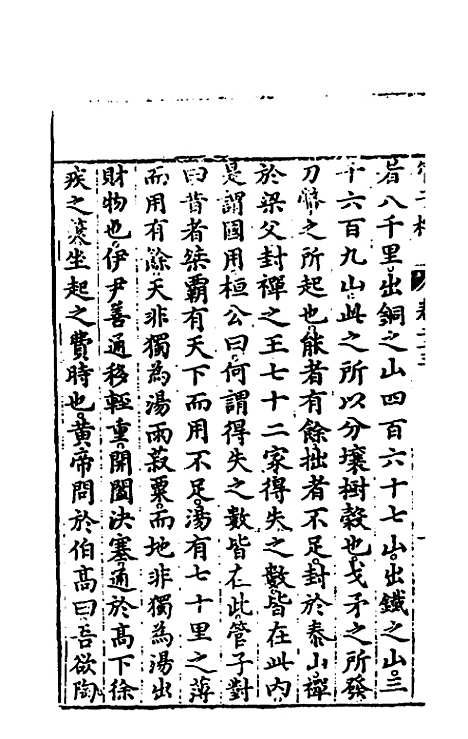 者八千里出銅之山四百六十七山出鐵之山三
千六百九山此之所以分壤樹穀也戈矛之所發
刀幣之所起也能者有餘拙者不足封於泰山禪
於梁父封禪之王七十二家得失之數皆在此內
是謂國用桓公曰何謂得失之數皆在此管子對
曰昔者桀霸有天下而用不足湯有七十里之薄
而用有餘天非獨為湯雨菽粟而地非獨為湯出
財物也伊尹善通移輕重開闔決塞通於高下徐
疾之筴坐起之費時也黄帝問於伯高曰吾欲陶